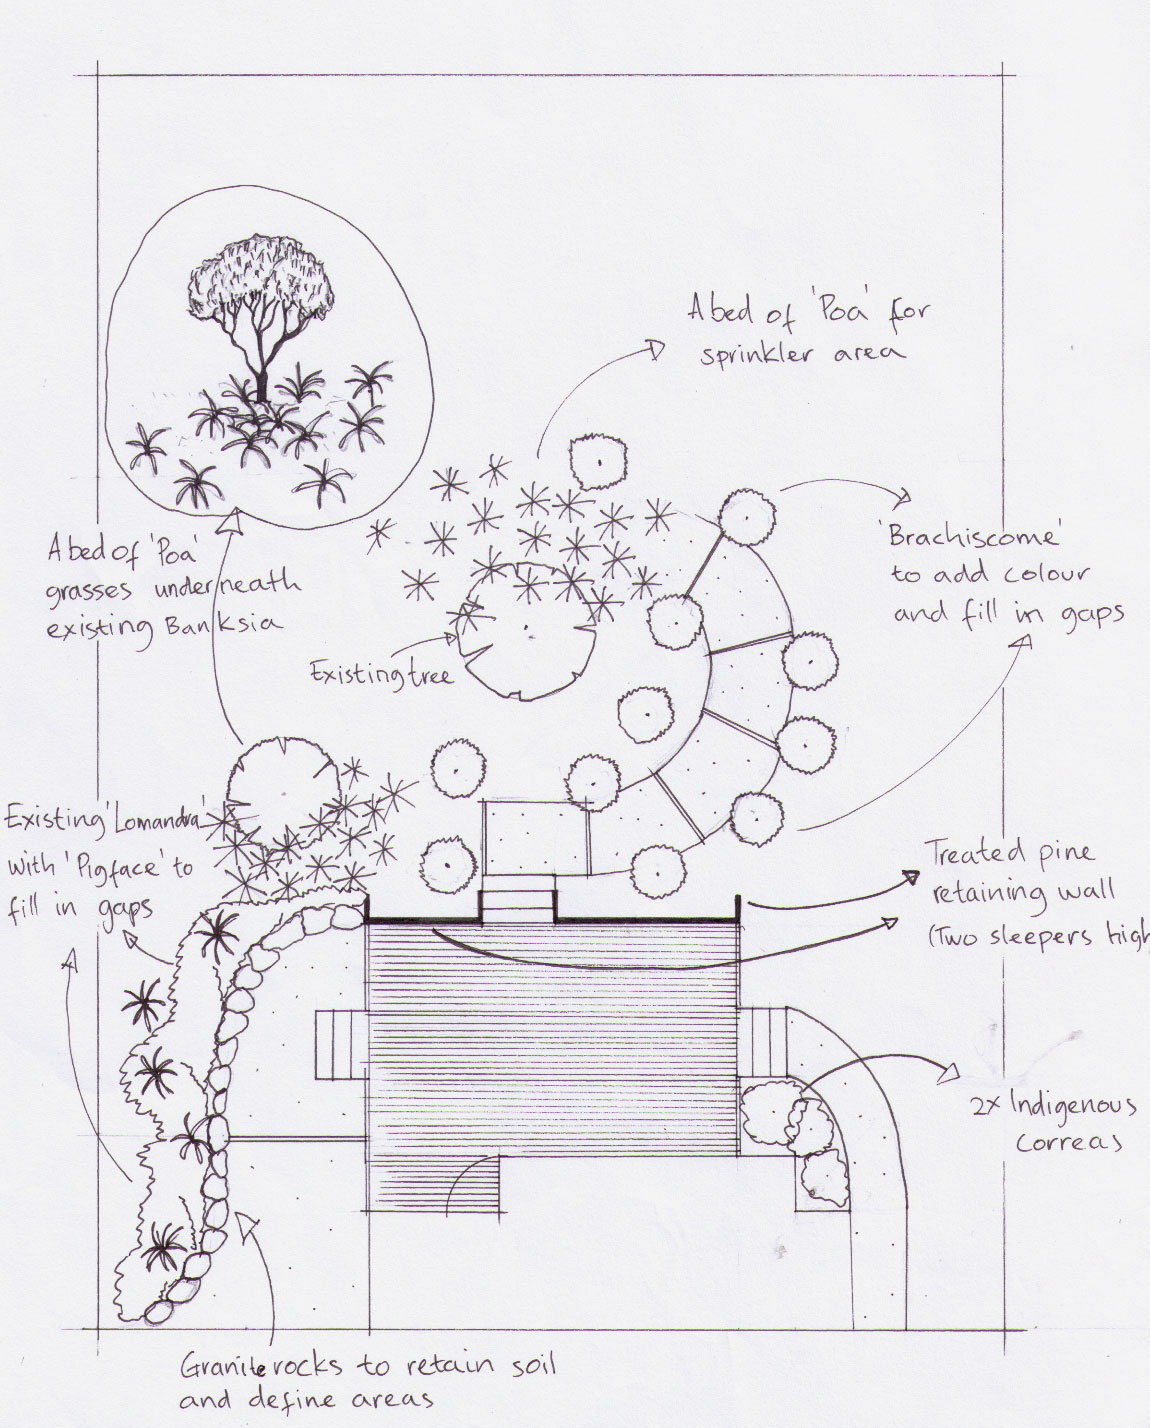 A bed of 'Poa' for
sprinkler area
'Brachiscome'
to add colour
and fill in gaps
A bed of 'Poa'
grasses underneath
existing Banksia
Existing tree
Existing 'Lomandra'
with 'Pigface' to
fill in gaps
Treated pine
retaining wall
(Two sleepers high
2x Indigenous
correas
Granite rocks to retain soil
and define areas